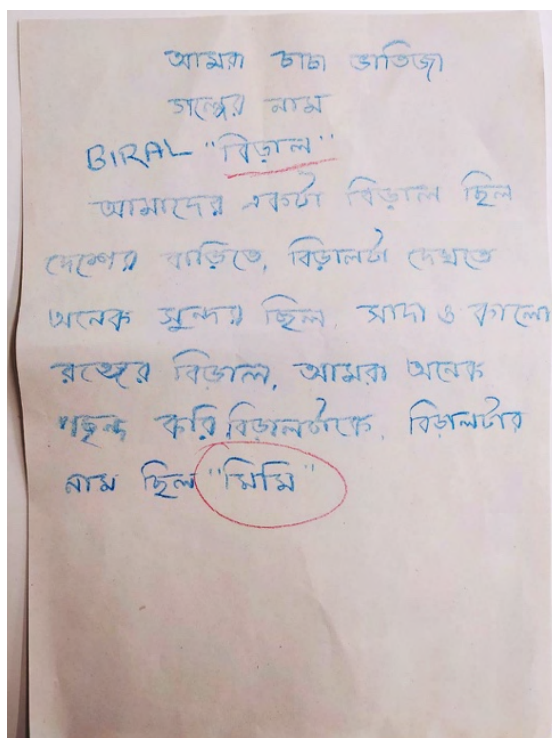 আমরা চাচা ভাতিজা
গল্পের নাম
BIRAL "বিড়াল"
আমাদের একটা বিড়াল ছিল
দেশের বাড়িতে, বিড়ালটা দেখতে
অনেক সুন্দর ছিল, সাদা ও কালো
রঙ্গের বিড়াল, আমরা অনেক
পছন্দ করি বিড়ালটাকে, বিড়ালটার
নাম ছিল "মিমি"